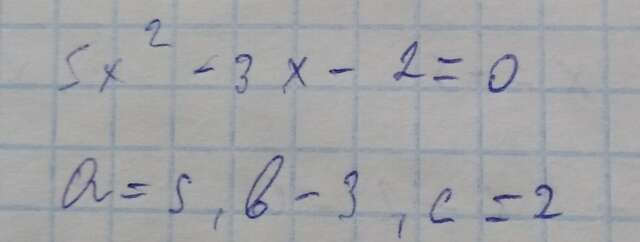 5x² - 3x - 2 = 0
a = 5, b - 3, c = 2